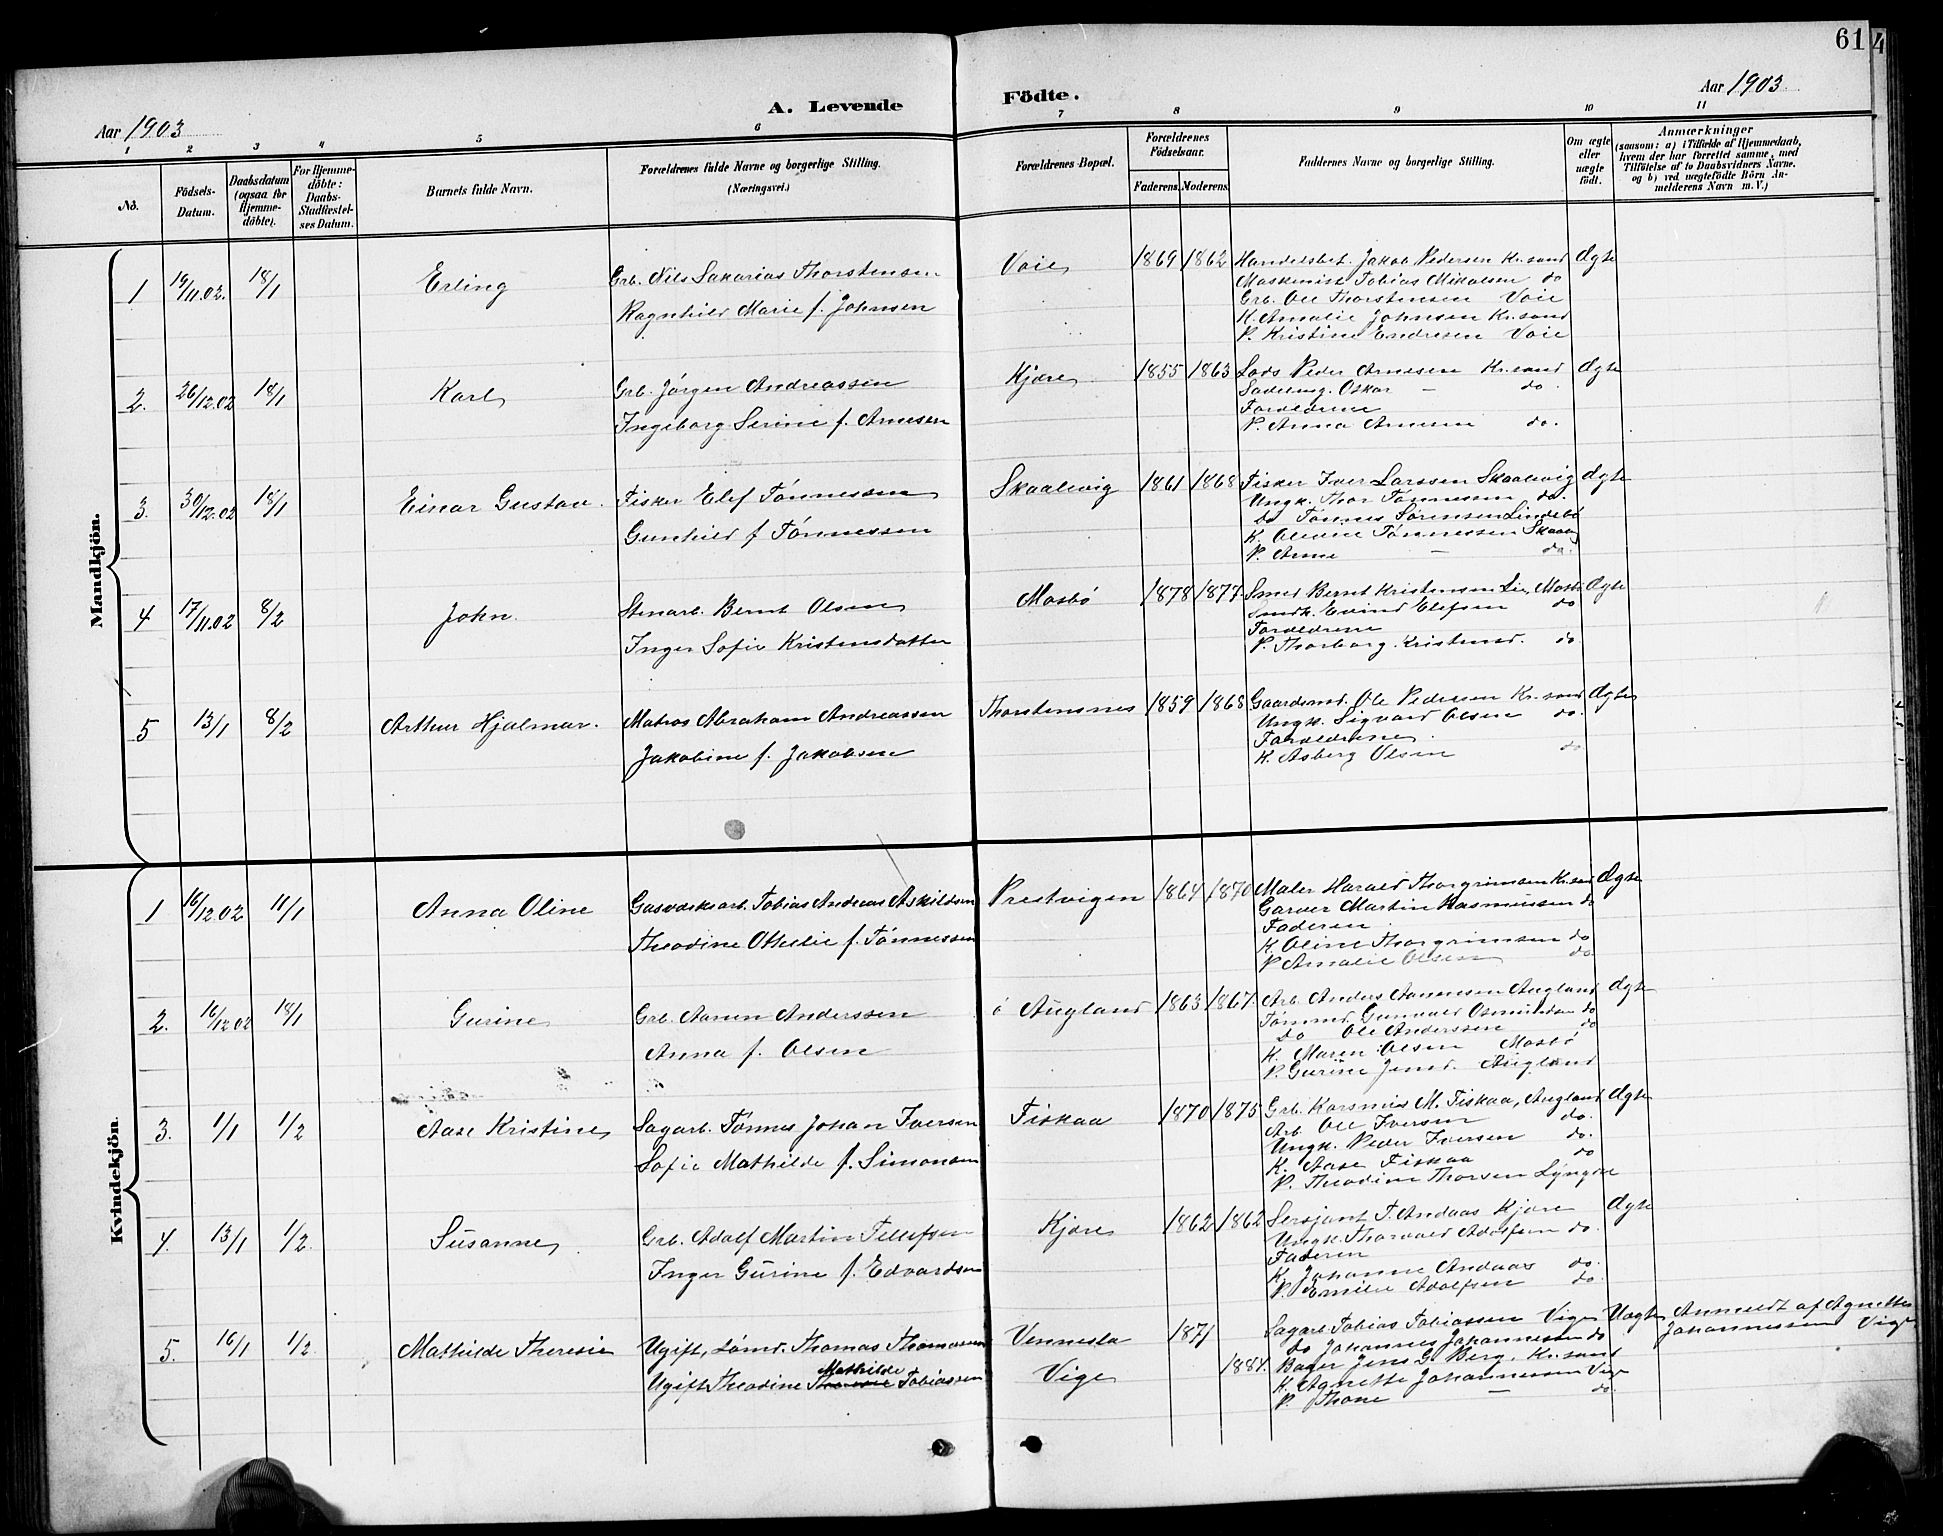 61
4
Aar 1903
A. Levende Födte.
Aar 1903
1 2 3 4 5 6 7 8 9 10 11
No.
Födsels-Datum.
Daabsdatum (ogsaa for Hjemme-döbte).
For Hjemme-döbte: Daabs-Stadfæstel-ses Datum.
Barnets fulde Navn.
Forældrenes fulde Navne og borgerlige Stilling. (Næringsvei.)
Forældrenes Bopæl.
Forældrenes Födselsaar.
Faderens. Moderens.
Faddernes Navne og borgerlige Stilling.
Om ægte eller uægte födt.
Anmærkninger
(saasom: a) i Tilfælde af Hjemmedaab, hvem der har forrettet samme, med Tilföielse af to Daabsvidners Navne. og b) ved uægtefödte Börn An-melderens Navn m. V.)
Mandkjön.
1 19/11.02. 18/1 Erling
Grb. Nils Sakarias Thorstensen
Ragnhild Marie f. Johnsen
Voie 1869 1862
Handelsbet. Jakob Pedersen Kr.sand Ægte
Maskinist Tobias Mikalsen do
Grb. Ole Thorstensen Voie
K. Amalie Johnsen Kr.sand
P. Kristine Endresen Voie
2. 26/12.02 18/1 Karl
Grb. Jörgen Andreassen
Ingeborg Serine f. Arnesen
Kjære 1855 1863
Lods Peder Arnesen Kr.sand Ægte
Sadelmg. Oskar — do.
Forældrene
P. Anna Arnesen do.
3. 30/12.02 18/1 Einar Gustav.
Fisker Elef Tönnessen
Gunhild f Tönnessen
Skaalevig 1861 1868
Fisker Iver Larssen Skaalevig Ægte
Ungk. Thor Tönnessen do.
do Tönnes Sörensen Lindebö
K. Olevine Tönnessen Skaalv
P. Anne — do.
4 17/11.02 8/2 John.
Stenarb. Bernt Olsen
Inger Sofie Kristensdatter
Mosbö 1878 1877
Smed Bernt Kristensen Lie, Mosb. Ægte
Smdk. Eivind Elefsen do
Forældrene
P. Thorborg Kristensd. do.
5 13/1 8/2 Arthur Hjalmar.
Matros Abraham Andreassen
Jakobine f. Jakobsen
Thorstensnes 1859 1868
Gaardsmd. Ole Pedersen Kr.sand Ægte
Ungk. Sigvard Olsen do.
Forældrene.
K. Asberg Olsen do
Kvindekjön.
1 16/12.02 11/1 Anna Oline
Gasværksarb. Tobias Andreas Askildsen
Theodine Othelie f. Tönnessen
Prestvigen 1864 1870
Maler Harald Thorgrimsen Kr.sand Ægte
Garver Martin Rasmussen do
Faderen
K. Oline Thorgrimsen do
P Amalie Olsen do.
2. 16/12 02 18/1 Gurine
Grb. Aanen Anderssen
Anna f. Olsen
ö Augland 1863 1867.
Arb. Anders Aanensen Augland Ægte
Tömmd. Gunvald Osmundsen do
do Ole Anderssen do
K. Maren Olsen Mosbö
P. Gurine Jensd. Augland
3. 1/1 1/2 Aase Kristine
Sagarb. Tönnes Johan Iversen
Sofie Mathilde f. Simonsen
Fiskaa 1870 1875
Grb. Rasmus M. Fiskaa, Augland Ægte
Arb. Ole Iversen do.
Ungk. Peder Iversen do.
K. Aase Fiskaa do
P. Theodine Thorsen
4 13/1 1/2. Susanne
Grb. Adolf Martin Tellefsen
Inger Gurine f. Edvardsen
Kjære 1862 1862
Sersjant T. Andaas Kjære Ægte
Ungk. Thorvald Adolfsen do.
Faderen
K. Johanne Andaas do.
P. Emilie Adolfsen do.
5. 16/1 1/2. Mathilde Theresie
Ugift, Tömd. Thomas Thomassen
Ugift Theodine Mathilde Tobiassen
Vennesla 1871
Vige 1884.
Sagarb. Tobias Tobiassen Vige Uægte Anmeldt af Agnette
do Johannes Johannessen do Johannessen Vige
Bager Jens G. Berg. Kr.sand
K. Agnette Johannessen Vige
P. Thone — do.